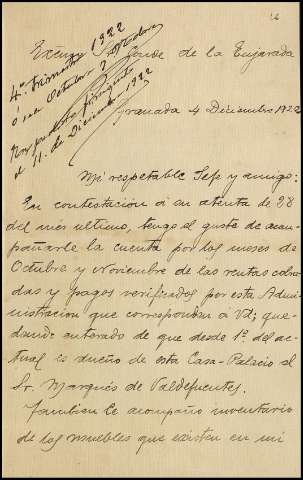 Excmo Sr Conde de la Enjarada
4º trimestre 1922
o sea Octubre y
11 de Diciembre 1922
Granada 4 Diciembre 1922
Mi respetable Jefe y amigo:
En contestación á su atenta de 28
del mes ultimo, tengo el gusto de acom
pañarle la cuenta por los meses de
Octubre y Noviembre de las rentas cobra
das y pagos verificados por esta Admi
nistración que corresponden á Vd; que
dando enterado de que desde 1º del ac
tual es dueño de esta Casa-Palacio el
Sr. Marqués de Valdefuentes.
Tambien le acompaño inventario
de los muebles que existen en mi